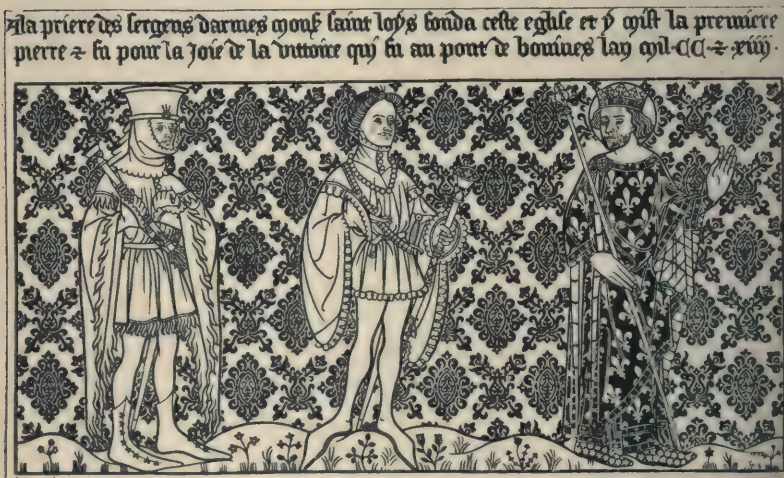 A la priere des sergens darmes mons saint loys fonda ceste eglise et y mist la premiere
pierre ⁊ fu pour la Joie de la vittoire qui fu au pont de bouines lan mil·CC·⁊·xiiij·